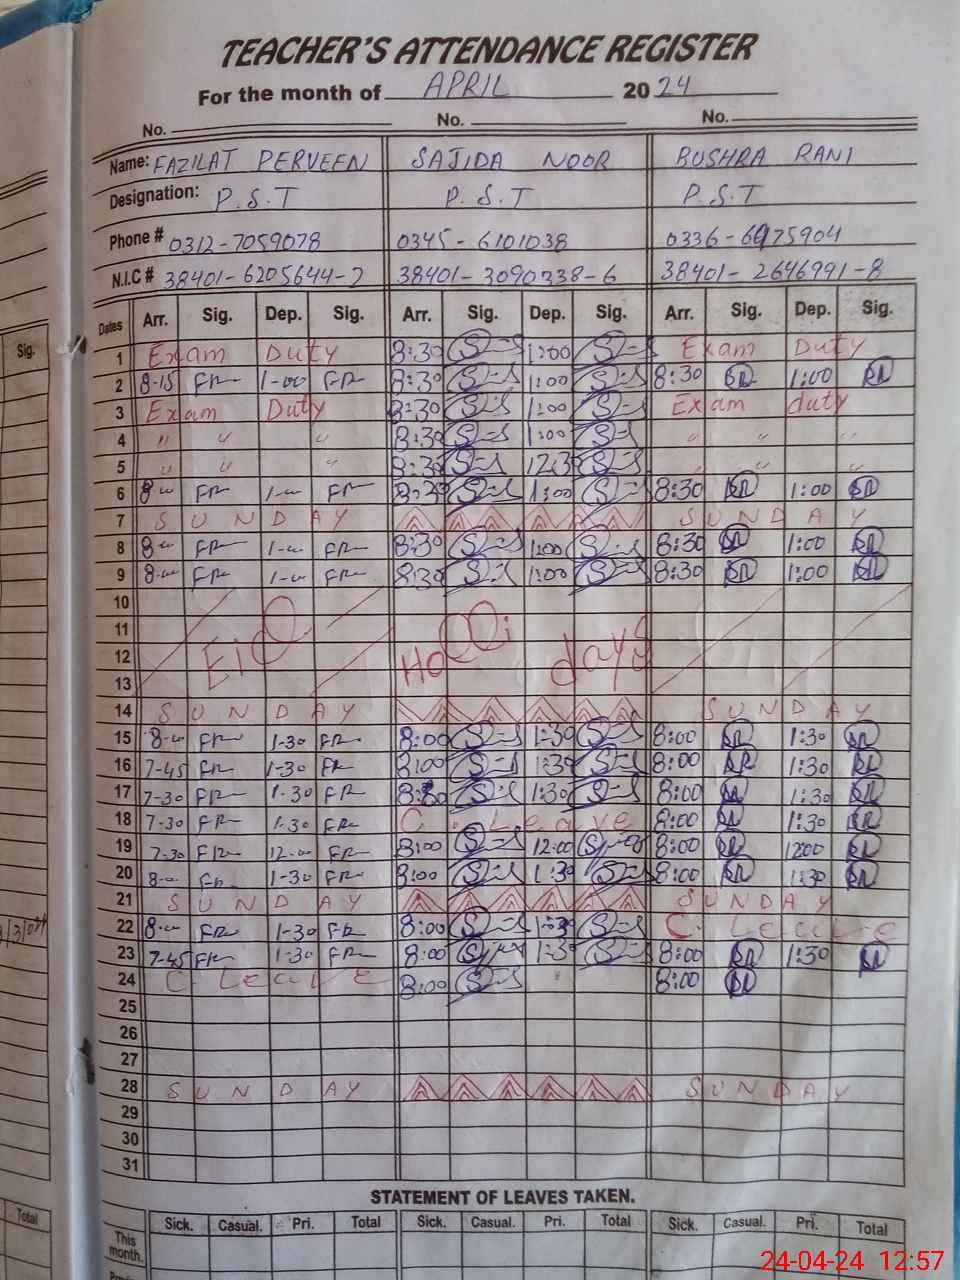 TEACHER'S ATTENDANCE REGISTER
For the month of APRIL 2024
No. No. No.
Name: FAZILAT PERVEEN SAJIDA NOOR BUSHRA RANI
Designation: P.S.T P.S.T P.S.T
Phone # 0312-7059078 0345-6101038 0336-6975904
N.I.C # 38401-6205644-2 38401-3090338-6 38401-2646991-8
Dates Arr. Sig. Dep. Sig. Arr. Sig. Dep. Sig. Arr. Sig. Dep. Sig.
Sig.
1 Exam Duty 8:30 S 1:00 S Exam Duty
2 8-15 FR 1-00 FR 8:30 S 1:00 S 8:30 BR 1:00 BR
3 Exam Duty 8:30 S 1:00 S Exam duty
4 " " " 8:30 S 1:00 S " " "
5 " " " 8:30 S 12:30 S " " "
6 8-00 FR 1-00 FR 8:30 S 1:00 S 8:30 BR 1:00 BR
7 SUNDAY SUNDAY
8 8-00 FR 1-00 FR 8:30 S 1:00 S 8:30 BR 1:00 BR
9 8-00 FR 1-00 FR 8:30 S 1:00 S 8:30 BR 1:00 BR
10
11
12 EiD Holli days
13
14 SUNDAY SUNDAY
15 8-00 FR 1-30 FR 8:00 S 1:30 S 8:00 BR 1:30 BR
16 7-45 FR 1-30 FR 8:00 S 1:30 S 8:00 BR 1:30 BR
17 7-30 FR 1-30 FR 8:00 S 1:30 S 8:00 BR 1:30 BR
18 7-30 FR 1-30 FR C. Leave 8:00 BR 1:30 BR
19 7-30 FR 12-00 FR 8:00 S 12:00 S 8:00 BR 12:00 BR
20 8-00 FR 1-30 FR 8:00 S 1:30 S 8:00 BR 1:30 BR
21 SUNDAY SUNDAY
22 8-00 FR 1-30 FR 8:00 S 1:30 S C. Leave
23 7-45 FR 1-30 FR 8:00 S 1:30 S 8:00 BR 1:30 BR
24 C. Leave 8:00 S 8:00 BR
25
26
27
28 SUNDAY SUNDAY
29
30
31
STATEMENT OF LEAVES TAKEN.
Total
Sick. Casual. Pri. Total Sick. Casual. Pri. Total Sick. Casual. Pri. Total
This month.
24-04-24 12:57